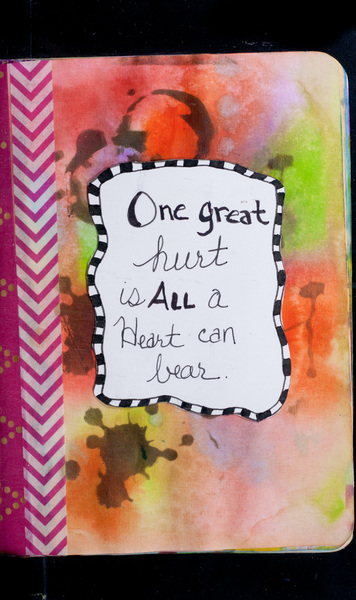 One great
hurt
is ALL a
Heart can
bear.